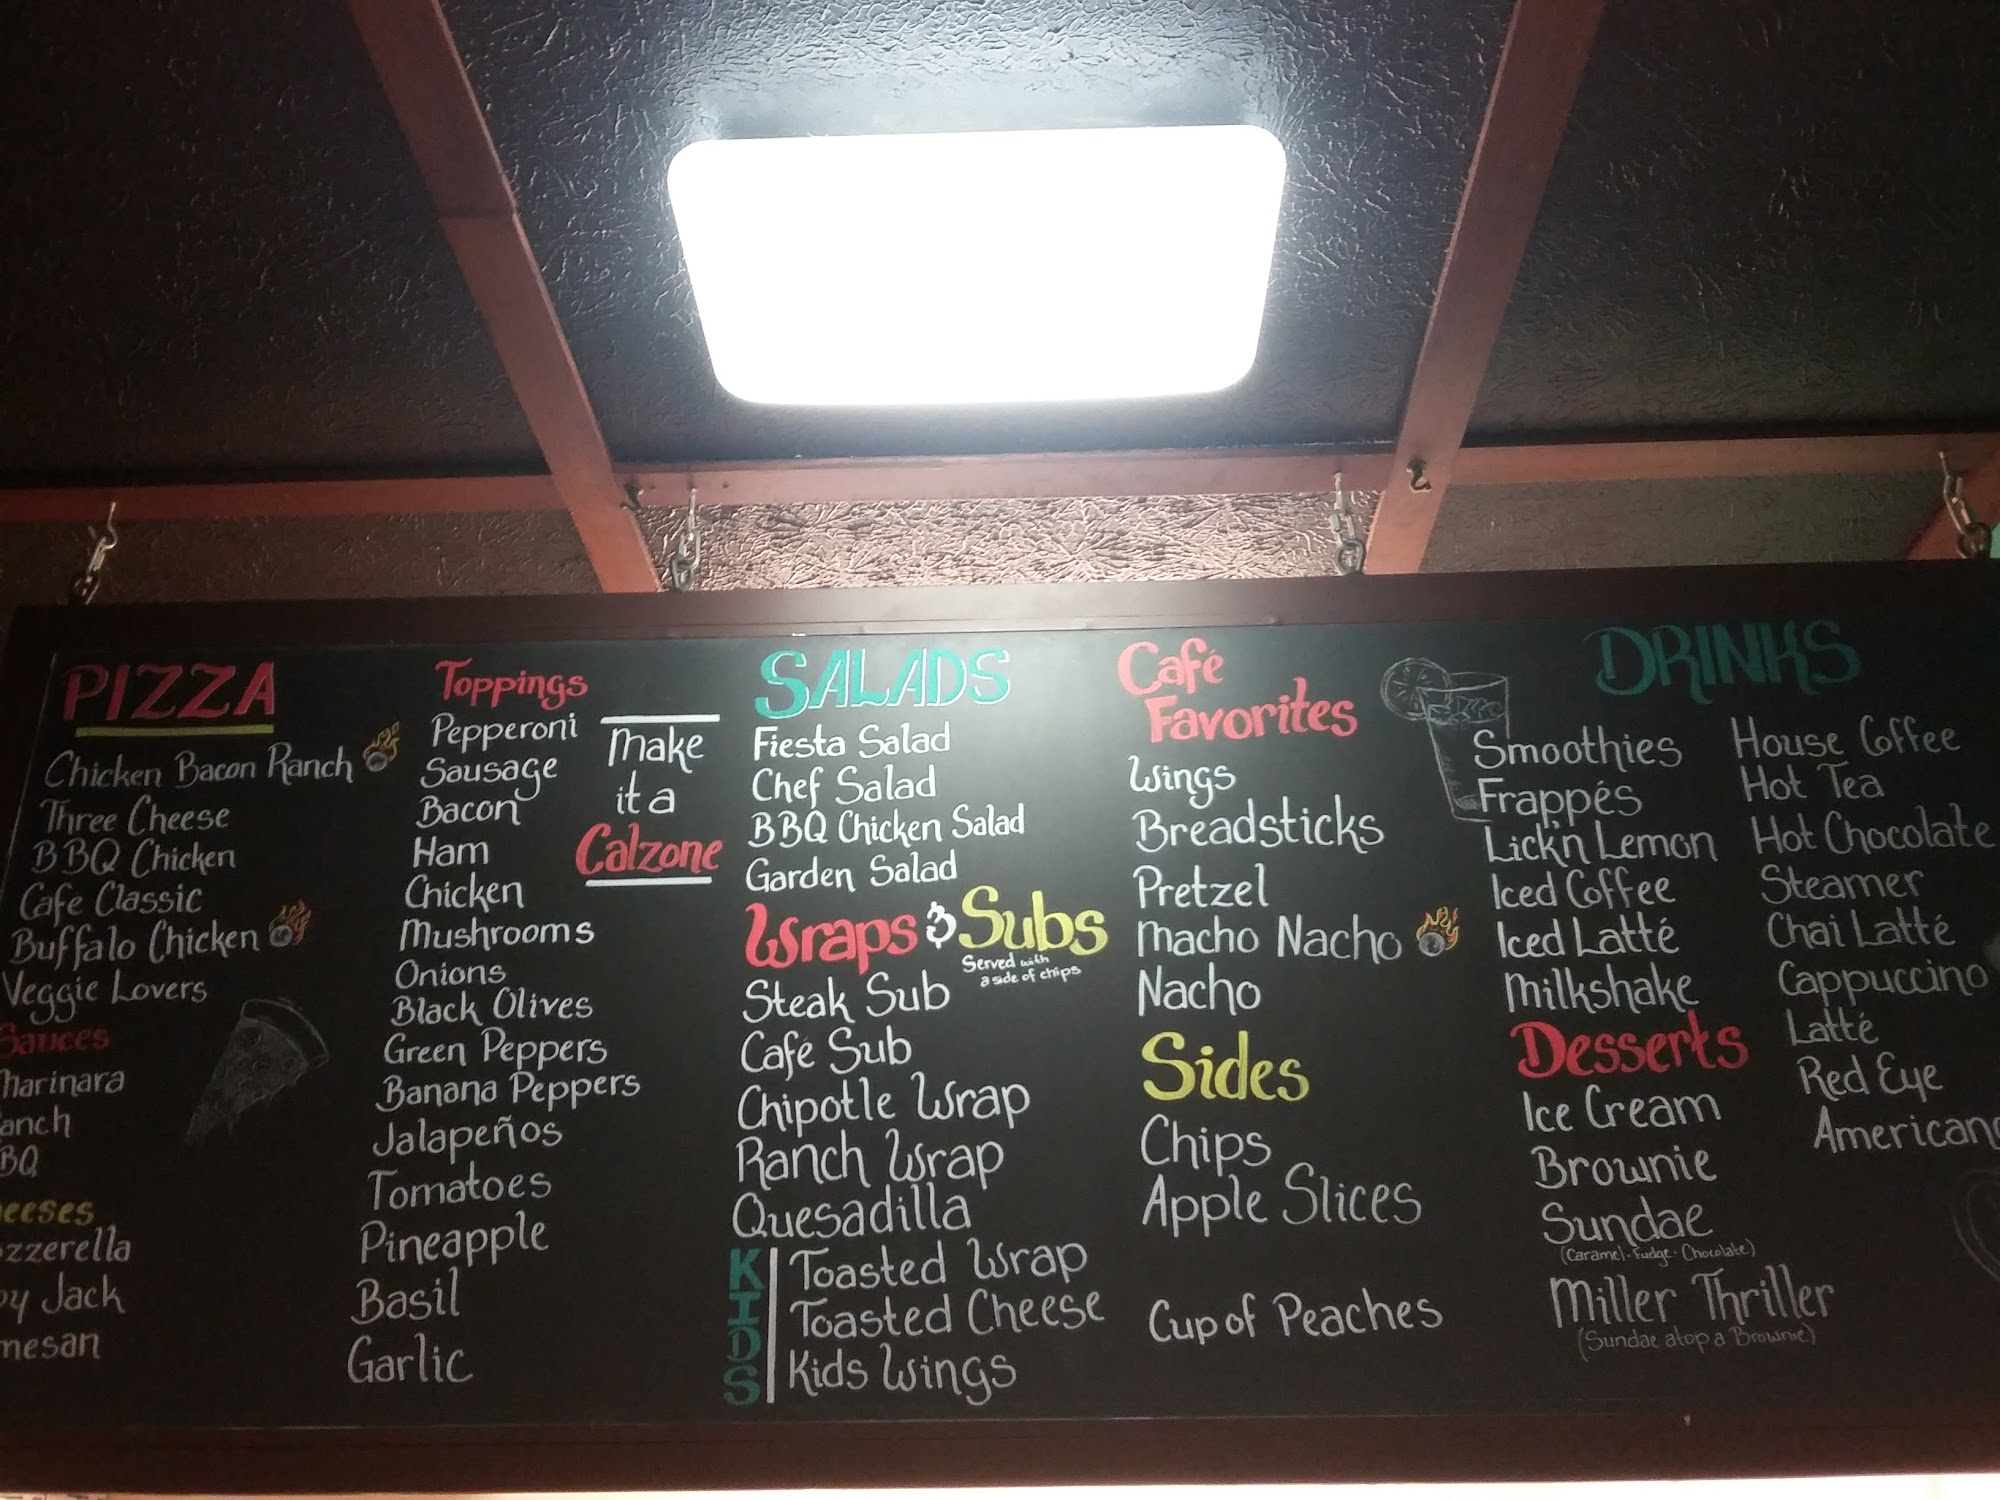 PIZZA
Chicken Bacon Ranch
Three Cheese
BBQ Chicken
Cafe Classic
Buffalo Chicken
Veggie Lovers
Sauces
Marinara
anch
BQ
eeses
ozzerella
oy Jack
mesan
Toppings
Pepperoni
Sausage
Bacon
Ham
Chicken
Mushrooms
Onions
Black Olives
Green Peppers
Banana Peppers
Jalapeños
Tomatoes
Pineapple
Basil
Garlic
Make
it a
Calzone
SALADS
Fiesta Salad
Chef Salad
BBQ Chicken Salad
Garden Salad
Wraps & Subs
Served with
a side of chips
Steak Sub
Café Sub
Chipotle Wrap
Ranch Wrap
Quesadilla
KIDS
Toasted Wrap
Toasted Cheese
Kids Wings
Café
Favorites
Wings
Breadsticks
Pretzel
Macho Nacho
Nacho
Sides
Chips
Apple Slices
Cup of Peaches
DRINKS
Smoothies
Frappés
Lick'n Lemon
Iced Coffee
Iced Latté
Milkshake
Desserts
Ice Cream
Brownie
Sundae
(Caramel · Fudge · Chocolate)
Miller Thriller
(Sundae atop a Brownie)
House Coffee
Hot Tea
Hot Chocolate
Steamer
Chai Latté
Cappuccino
Latté
Red Eye
Americano